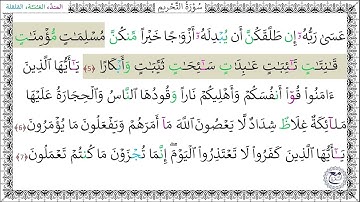 سُورَةُ التَّحْرِيمِ
عَسَىٰ رَبُّهُۥٓ إِن طَلَّقَكُنَّ أَن يُبْدِلَهُۥٓ أَزْوَٰجًا خَيْرًا مِّنكُنَّ مُسْلِمَٰتٍ مُّؤْمِنَٰتٍ
قَٰنِتَٰتٍ تَٰٓئِبَٰتٍ عَٰبِدَٰتٍ سَٰٓئِحَٰتٍ ثَيِّبَٰتٍ وَأَبْكَارًا (5) يَٰٓأَيُّهَا ٱلَّذِينَ
ءَامَنُوا۟ قُوٓا۟ أَنفُسَكُمْ وَأَهْلِيكُمْ نَارًا وَقُودُهَا ٱلنَّاسُ وَٱلْحِجَارَةُ عَلَيْهَا
مَلَٰٓئِكَةٌ غِلَاظٌ شِدَادٌ لَّا يَعْصُونَ ٱللَّهَ مَآ أَمَرَهُمْ وَيَفْعَلُونَ مَا يُؤْمَرُونَ (6)
يَٰٓأَيُّهَا ٱلَّذِينَ كَفَرُوا۟ لَا تَعْتَذِرُوا۟ ٱلْيَوْمَ ۖ إِنَّمَا تُجْزَوْنَ مَا كُنتُمْ تَعْمَلُونَ (7)